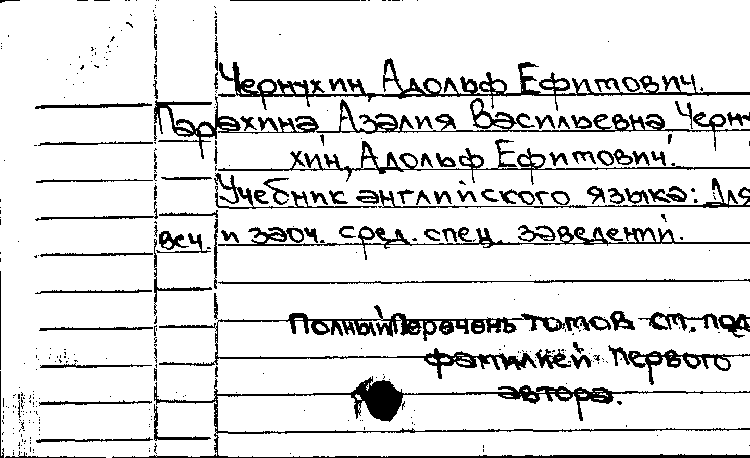 Чернухин, Адольф Ефимович.
Парахина, Азалия Васильевна, Черну
хин, Адольф Ефимович.
Учебник английского языка: Для
веч. и заоч. сред. спец. заведений.
Полный перечень томов см. под
фамилией первого
автора.